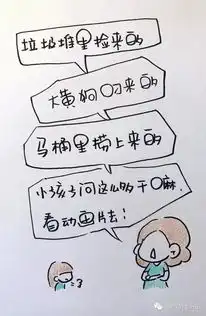 垃圾堆里捡来的
大黄狗叼来的
马桶里捞上来的
小孩子问这么多干嘛,
看动画片去!
=3